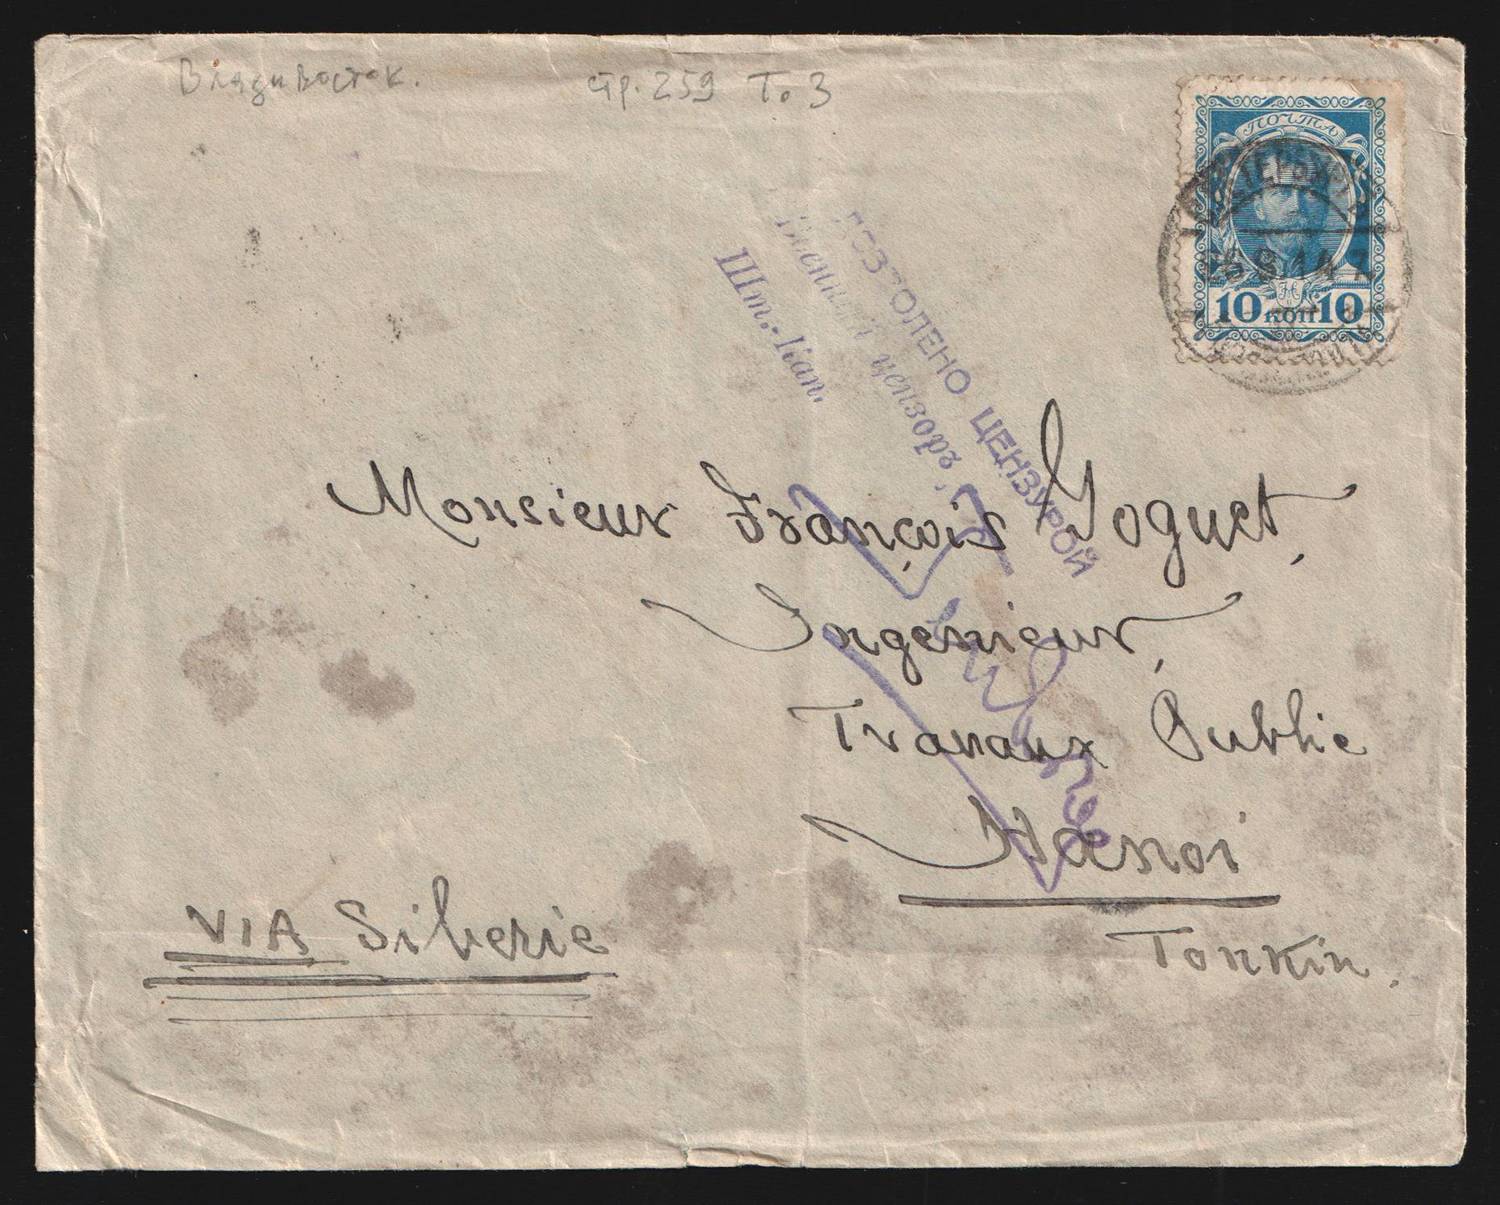 Владивосток. стр. 259 Т. 3
ПОЧТА
10 КОП 10
ДОЗВОЛЕНО ЦЕНЗУРОЙ
Военный цензоръ,
Шт.-Кап.
Monsieur François Goguet,
Ingenieur,
Travaux Public
Hanoi
VIA Siberie
Tonkin.